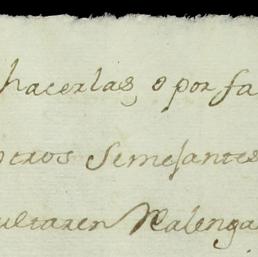 hacerlas, o por fa
otros Semejantes
ultaren Realenga